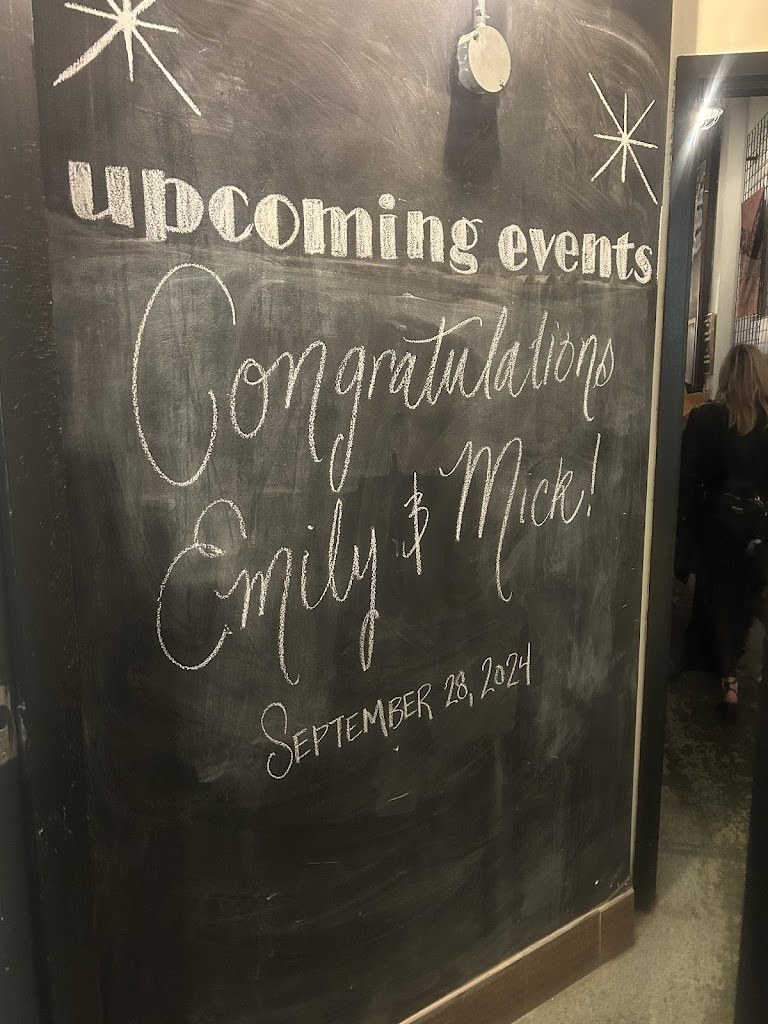 upcoming events
Congratulations
Emily & Mick!
SEPTEMBER 28, 2024